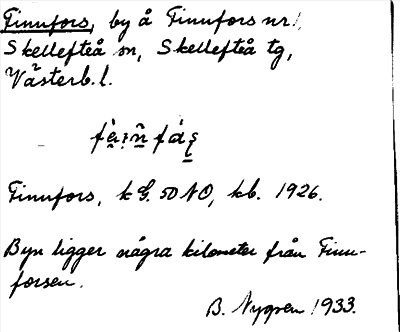 Finnfors, by å Finnfors nr 1,
Skellefteå sn, Skellefteå tg,
Västerb. l.
Finnfors, k G. 50 NO, kb. 1926.
Byn ligger några kilometer från Finn-
forsen.
B. Nygren 1933.